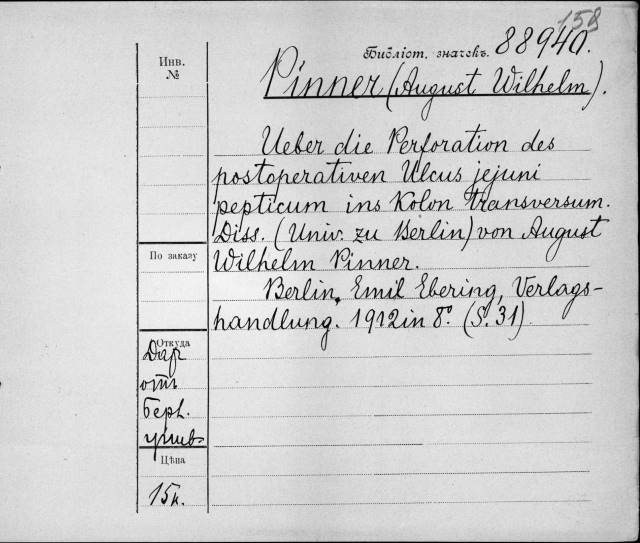 158
Библіот. значекъ. 88940.
Инв.
№
Pinner (August Wilhelm).
Ueber die Perforation des
postoperativen Ulcus jejuni
pepticum ins Kolon transversum.
Diss. (Univ. zu Berlin) von August
Wilhelm Pinner.
По заказу
Berlin, Emil Ebering, Verlags-
handlung. 1912 in 8°. (S. 31)
Откуда
Даръ
отъ
Берл.
унив.
Цѣна
15к.